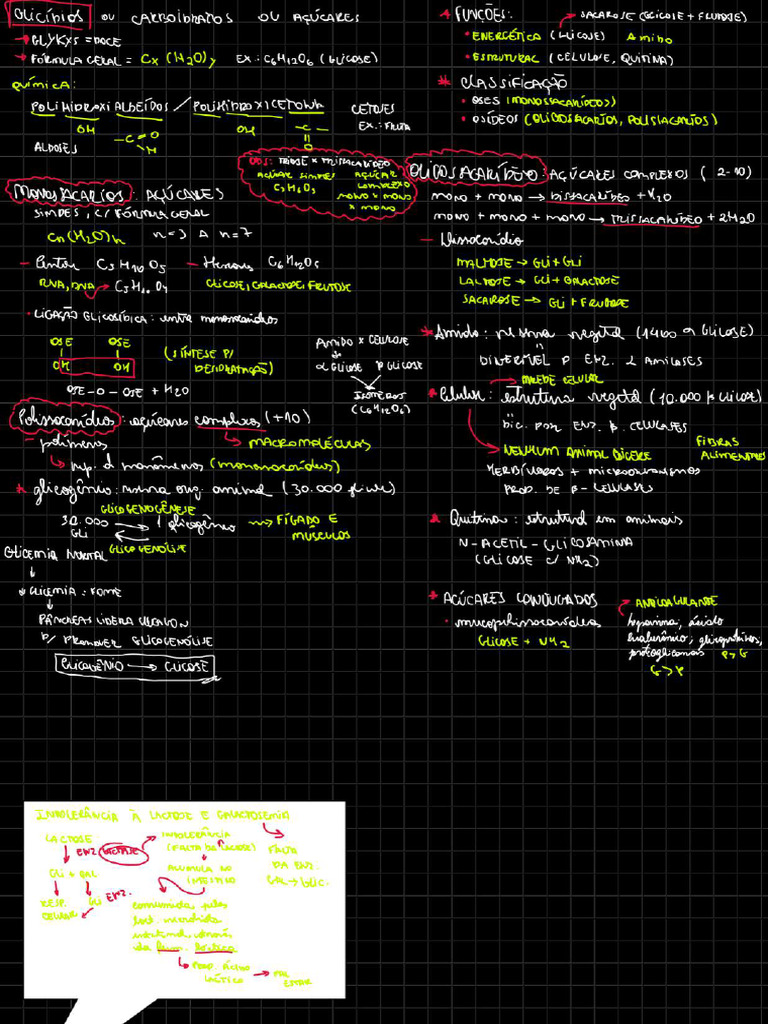 GLICÍDIOS OU CARBOIDRADOS OU AÇÚCARES
→ GLYKYS = DOCE
→ FÓRMULA GERAL = Cx (H2O)y EX.: C6H12O6 (GLICOSE)
QUÍMICA:
POLIHIDROXIALDEÍDOS / POLIHIDROXICETONA CETOSES
OH OH EX.: FRUTA
ALDOSES -C=O H -C- O
OBS: TRIOSE × TRISSACARÍDEO
AÇÚCAR SIMPLES AÇÚCAR
C3H6O3 COMPLEXO
MONO × MONO
× MONO
MONOSSACARÍOS: AÇÚCARES
SIMPLES, C/ FÓRMULA GERAL
Cn(H2O)n n=3 A n=7
- Pentose C5H10O5 - Hexoses C6H12O6
RNA, DNA → C5H10O4 GLICOSE, GALACTOSE, FRUTOSE
• LIGAÇÃO GLICOSÍDICA: entre monossacarídeos
OSE OSE
OH OH (SÍNTESE P/ DESIDRATAÇÃO)
OSE-O-OSE + H2O
AMIDO × CELULOSE
α GLICOSE β GLICOSE
ISÔMEROS
(C6H12O6)
Polissacarídeos: açúcares complexos (+10)
- polímeros → MACROMOLÉCULAS
→ d monômeros (monossacarídeos)
* glicogênio: reserva org. animal (30.000
GLICOGENOGÊNESE
30.000 GLI 1 glicogênio → FÍGADO E MÚSCULOS
GLICOGENÓLISE
GLICEMIA NORMAL
↓
↓ GLICEMIA: FOME
↓
PÂNCREAS LIBERA GLUCAGON
P/ PROMOVER GLICOGENÓLISE
GLICOGÊNIO → GLICOSE
* FUNÇÕES: → SACAROSE (GLICOSE + FRUTOSE)
• ENERGÉTICA (GLICOSE) Amido
• ESTRUTURAL (CELULOSE, QUITINA)
* CLASSIFICAÇÃO
• OSES (MONOSSACARÍDEOS)
• OSÍDEOS (OLIGOSSACARIOS, POLISSACARIOS)
OLIGOSSACARÍDEO: AÇÚCARES COMPLEXOS (2-10)
MONO + MONO → DISSACARÍDEO + H2O
MONO + MONO + MONO → TRISSACARÍDEO + 2H2O
- Dissacarídio
MALTOSE → GLI + GLI
LACTOSE → GLI + GALACTOSE
SACAROSE → GLI + FRUTOSE
* Amido: reserva vegetal (1400 α GLICOSE)
DIGERÍVEL P. ENZ. α AMILASES
→ PAREDE CELULAR
* Celulose: estrutura vegetal (10.000 β GLICOSE)
DIG. POR ENZ. β. CELULASES
→ NENHUM ANIMAL DIGERE FIBRAS ALIMENTARES
HERBÍVOROS + MICROORGANISMOS
PROD. DE β-CELULASES
* Quitina: estrutural em animais
N-ACETIL-GLICOSAMINA
(GLICOSE C/ NH2)
* AÇÚCARES CONJUGADOS → ANTICOAGULANTE
• mucopolissacarídeos heparina, ácido
GLICOSE + NH2 hialurônico; glicoproteínas,
proteoglicanas P>G
G>P
INTOLERÂNCIA À LACTOSE E GALACTOSEMIA
LACTOSE → INTOLERÂNCIA
ENZ. LACTASE (FALTA DA LACTASE) FALTA
DA ENZ.
GLI + GAL ACUMULA NO GAL → GLIC.
INTESTINO
RESP. GLI ENZ. consumida pelas
CELULAR bact. microbiota
intestinal, através
da ferm. láctica
→ PROD. ÁCIDO LÁCTICO → MAL ESTAR